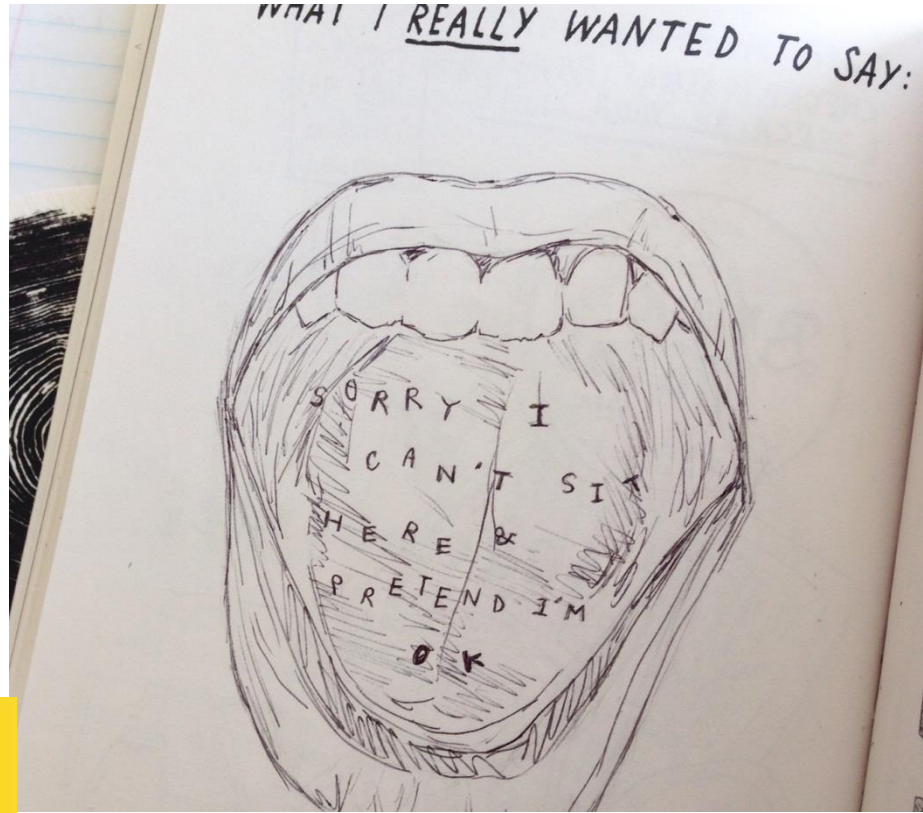 WHAT I REALLY WANTED TO SAY:
SORRY I
CAN'T SIT
HERE &
PRETEND I'M
OK